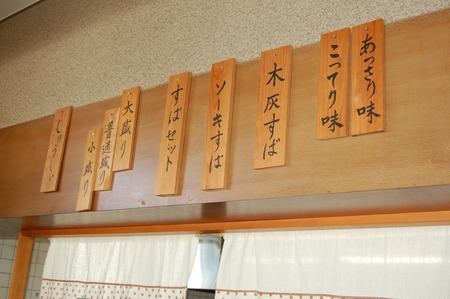 あっさり味
こってり味
木灰すば
ソーキすば
すばセット
大盛り
普通盛り
小盛り